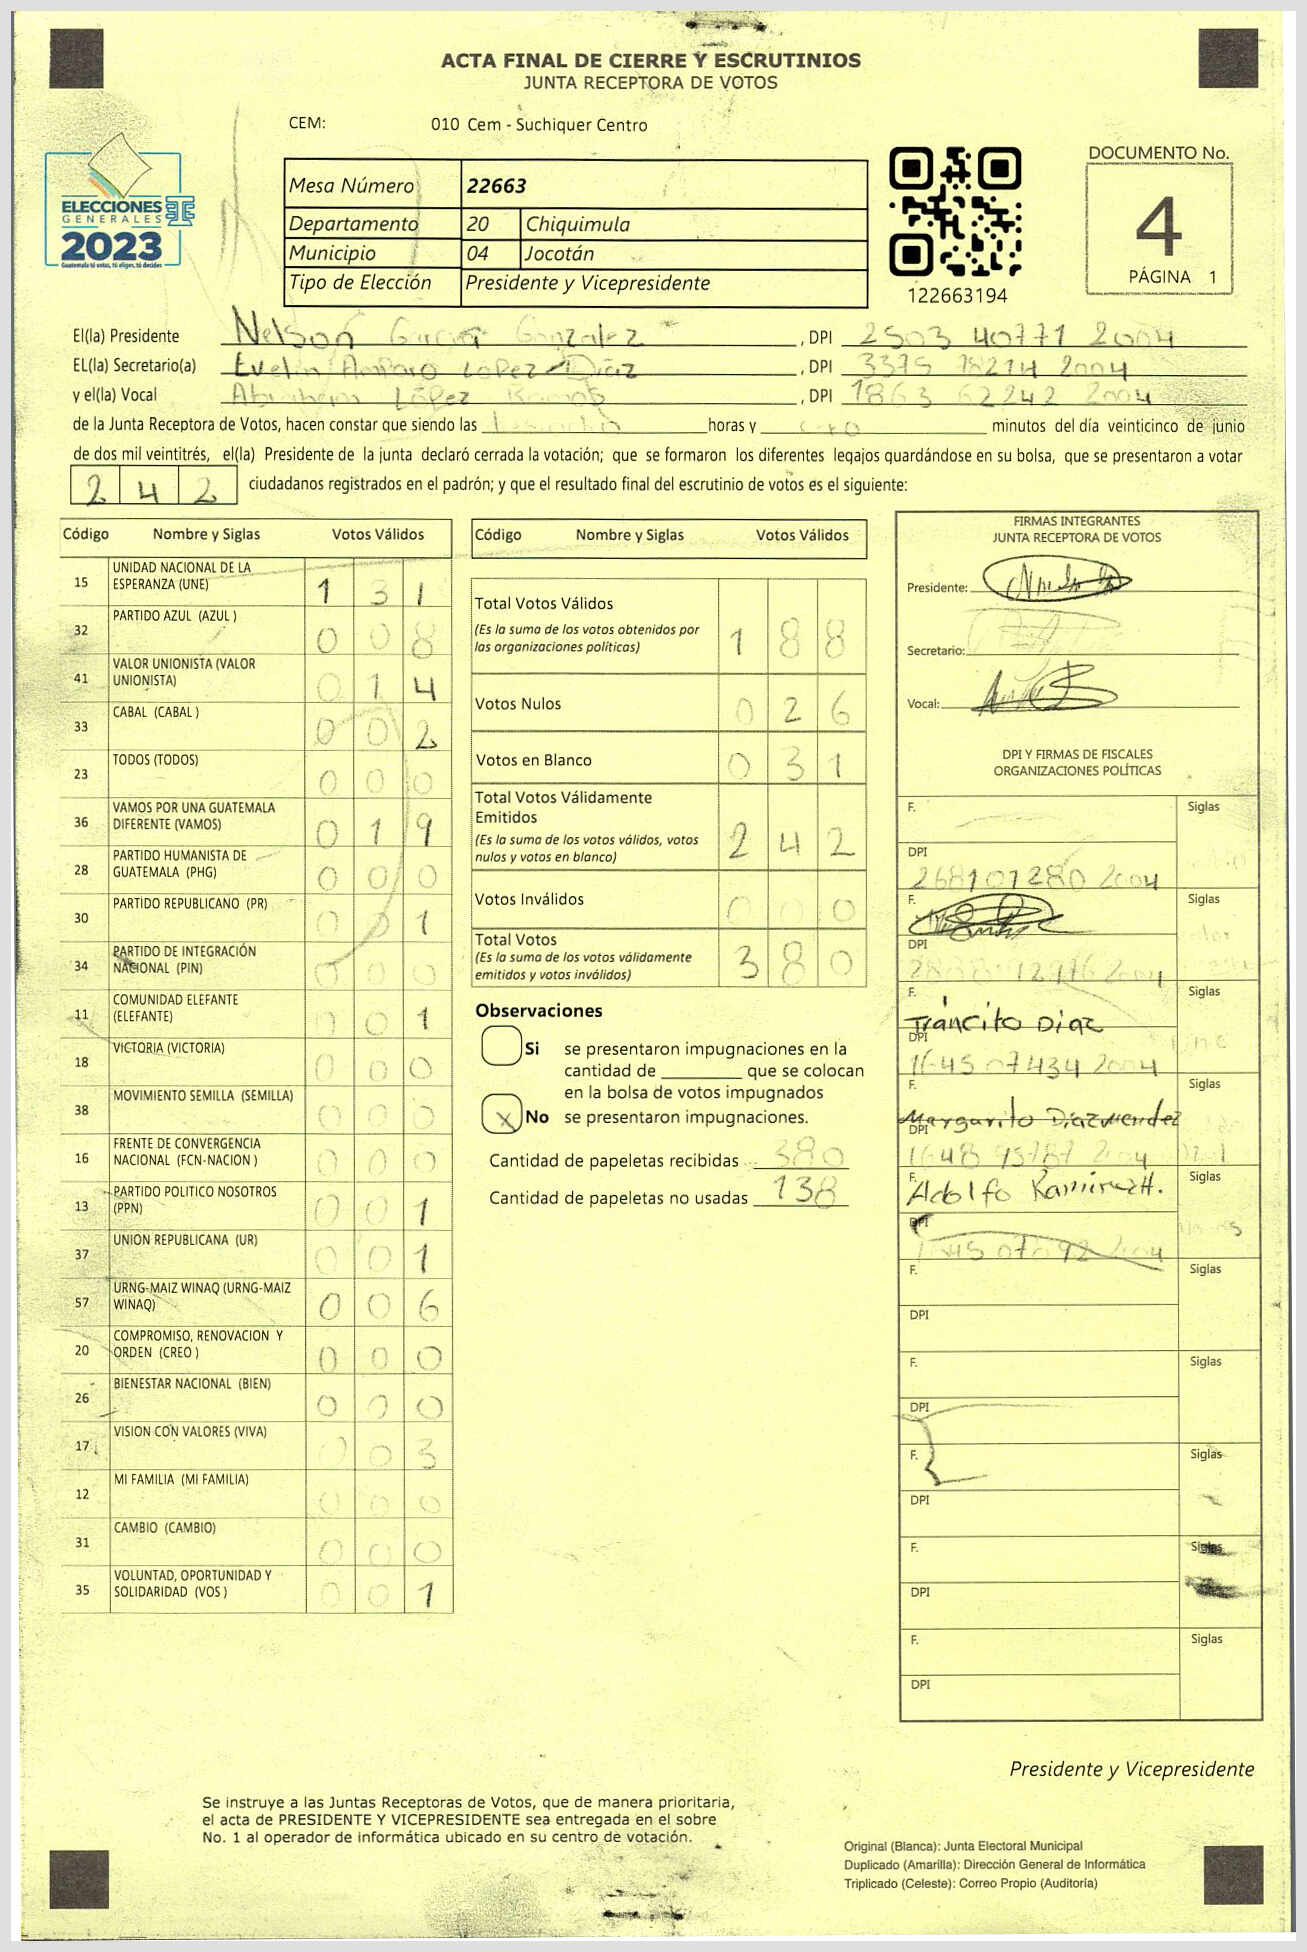 ACTA FINAL DE CIERRE Y ESCRUTINIOS
JUNTA RECEPTORA DE VOTOS
CEM: 010 Cem - Suchiquer Centro
ELECCIONES
GENERALES
2023
Guatemala tú votas, tú eliges, tú decides
Mesa Número 22663
Departamento 20 Chiquimula
Municipio 04 Jocotán
Tipo de Elección Presidente y Vicepresidente
122663194
DOCUMENTO No.
4
PÁGINA 1
El(la) Presidente Nelson Garcia Gonzalez , DPI 2503 40771 2004
EL(la) Secretario(a) Evelin Amparo López Díaz , DPI 3375 78214 2004
y el(la) Vocal Abraham López Ramos , DPI 1863 62242 2004
de la Junta Receptora de Votos, hacen constar que siendo las horas y cero minutos del día veinticinco de junio
de dos mil veintitrés, el(la) Presidente de la junta declaró cerrada la votación; que se formaron los diferentes legajos guardándose en su bolsa, que se presentaron a votar
2 4 2 ciudadanos registrados en el padrón; y que el resultado final del escrutinio de votos es el siguiente:
Código Nombre y Siglas Votos Válidos
15 UNIDAD NACIONAL DE LA ESPERANZA (UNE) 1 3 1
32 PARTIDO AZUL (AZUL ) 0 0 8
41 VALOR UNIONISTA (VALOR UNIONISTA) 0 1 4
33 CABAL (CABAL ) 0 0 2
23 TODOS (TODOS) 0 0 0
36 VAMOS POR UNA GUATEMALA DIFERENTE (VAMOS) 0 1 9
28 PARTIDO HUMANISTA DE GUATEMALA (PHG) 0 0 0
30 PARTIDO REPUBLICANO (PR) 0 0 1
34 PARTIDO DE INTEGRACIÓN NACIONAL (PIN) 0 0 0
11 COMUNIDAD ELEFANTE (ELEFANTE) 0 0 1
18 VICTORIA (VICTORIA) 0 0 0
38 MOVIMIENTO SEMILLA (SEMILLA) 0 0 0
16 FRENTE DE CONVERGENCIA NACIONAL (FCN-NACION ) 0 0 0
13 PARTIDO POLITICO NOSOTROS (PPN) 0 0 1
37 UNION REPUBLICANA (UR) 0 0 1
57 URNG-MAIZ WINAQ (URNG-MAIZ WINAQ) 0 0 6
20 COMPROMISO, RENOVACION Y ORDEN (CREO ) 0 0 0
26 BIENESTAR NACIONAL (BIEN) 0 0 0
17 VISION CON VALORES (VIVA) 0 0 3
12 MI FAMILIA (MI FAMILIA) 0 0 0
31 CAMBIO (CAMBIO) 0 0 0
35 VOLUNTAD, OPORTUNIDAD Y SOLIDARIDAD (VOS ) 0 0 1
Código Nombre y Siglas Votos Válidos
Total Votos Válidos 1 8 8
(Es la suma de los votos obtenidos por
las organizaciones políticas)
Votos Nulos 0 2 6
Votos en Blanco 0 3 1
Total Votos Válidamente
Emitidos 2 4 2
(Es la suma de los votos válidos, votos
nulos y votos en blanco)
Votos Inválidos 0 0 0
Total Votos 3 8 0
(Es la suma de los votos válidamente
emitidos y votos inválidos)
Observaciones
Si se presentaron impugnaciones en la
cantidad de ________ que se colocan
en la bolsa de votos impugnados
X No se presentaron impugnaciones.
Cantidad de papeletas recibidas 380
Cantidad de papeletas no usadas 138
FIRMAS INTEGRANTES
JUNTA RECEPTORA DE VOTOS
Presidente:
Secretario:
Vocal:
DPI Y FIRMAS DE FISCALES
ORGANIZACIONES POLÍTICAS
F. Siglas
DPI
268101280 2004
F. Siglas
DPI
2004
F. Siglas
Tráncito Diaz
DPI
1645 07434 2004
F. Siglas
Margarito Diaz Mendez
DPI
1648 95787 2004
F. Siglas
Adolfo Ramirez H.
DPI
1645 07092 2004
F. Siglas
DPI
F. Siglas
DPI
F. Siglas
DPI
F. Siglas
DPI
F. Siglas
DPI
Presidente y Vicepresidente
Se instruye a las Juntas Receptoras de Votos, que de manera prioritaria,
el acta de PRESIDENTE Y VICEPRESIDENTE sea entregada en el sobre
No. 1 al operador de informática ubicado en su centro de votación.
Original (Blanca): Junta Electoral Municipal
Duplicado (Amarilla): Dirección General de Informática
Triplicado (Celeste): Correo Propio (Auditoría)